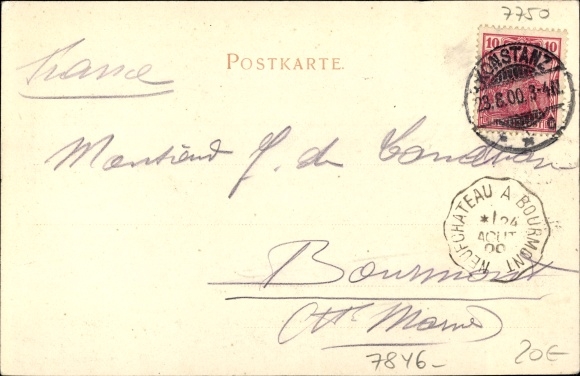 7750
POSTKARTE.
France
10 10
KONSTANZ
23.8.00.3-4N.
Monsieur J. de
NEUFCHATEAU A BOURMONT
*1 24
AOUT
00
Bourmont
Hte Marne
7846-
20€